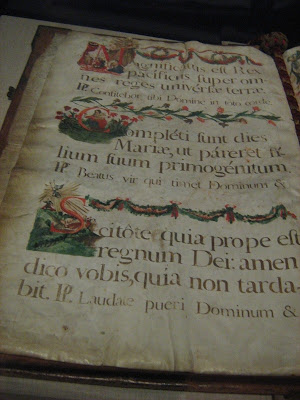 Magnificatus est Rex
pacificus super om-
nes reges univérsæ terræ.
℟. Confitebor tibi Domine in toto corde
Compléti sunt dies
Mariæ, ut páreret fi-
lium suum primogénitum.
℟. Beatus vir qui timet Dominum &
Scitóte quia prope est
regnum Dei: amen
dico vobis, quia non tarda-
bit. ℟. Laudate pueri Dominum &